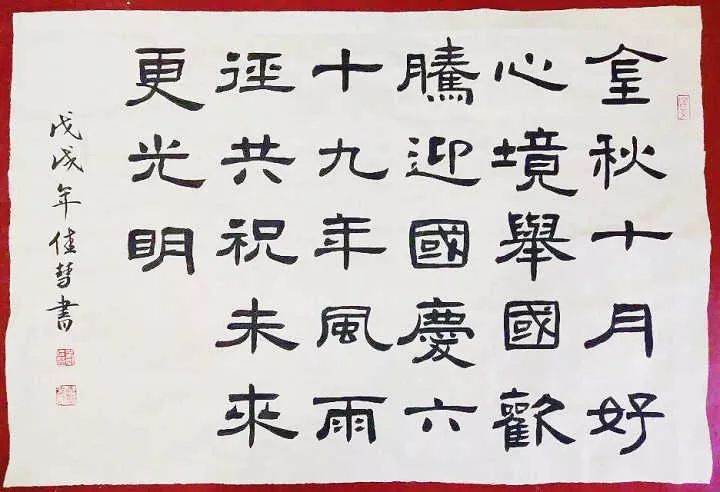 金秋十月好
心境舉國歡
騰迎國慶六
十九年風雨
徑共祝未來
更光明
戊戌年佳慧書